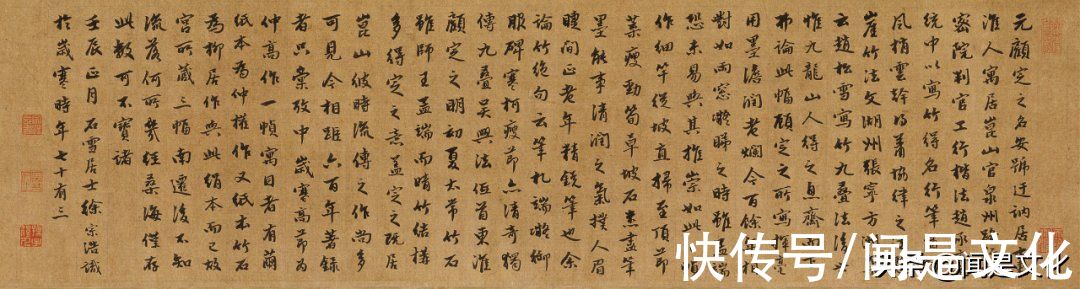 元顧定之名安號迂訥居
淮人寓居崑山官泉州路
密院判官工行楷法趙承
統中以寫竹得名行筆
風梢雲幹蕭協律之
崖竹法文湖州張寧方
云趙松雪寫竹九疊法
惟九龍山人得之息齋
論此幀顧定之所寫
用墨濃潤老爛今百餘
對如睇之時雖
恐未易與其推崇如此
作細竿從坡直掃至頂節
葉瘦勁筍草坡石悉盡筆
墨能事清潤之氣撲人眉
睫間正老年精銳筆也余
論竹絶句云筆札端御
服碑寒柯瘦節亦清奇獨
傳九疊吳興法首東淮
顧定之明初夏太常竹石
雖師王孟端而晴竹結構
多得定之意蓋定之既居
崑山彼時流傳之作尚多
可見今相距六百年著録
者只彙攷中歲寒高節為
仲高作一幀寓目者有
紙本為仲權作又紙本竹石
為柳居作與此絹本而已故
宮所藏三幀南遷後不知
流落何所幾經桑海僅存
此數可不寶諸
壬辰正月石雪居士徐宗浩識
於歲寒時年七十有三
快传号/闻是文化